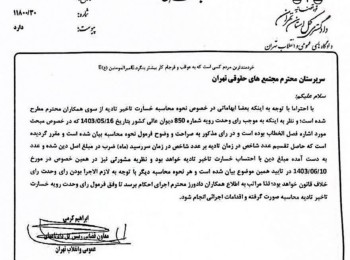 شماره: ۱۱۸۰۰/۳۰
تاریخ:
پیوست: دارد
دادگستری کل استان تهران
دادگاه‌های عمومی و انقلاب تهران
خردمندترین مردم کسی است که به عواقب و فرجام کار بیشتر بنگرد.
سرپرستان محترم مجتمع های حقوقی تهران
سلام علیکم؛
با احترام؛ با توجه به اینکه بعضا ابهاماتی در خصوص نحوه محاسبه خسارت تاخیر تادیه از سوی همکاران محترم مطرح
شده است؛ نظر به اینکه به موجب رای وحدت رویه شماره 850 دیوان عالی کشور بتاریخ 1403/05/16 که در خصوص مبحث
مورد اشاره فصل الخطاب بوده است و در رای مذکور به صراحت و وضوح فرمول نحوه محاسبه بیان شده است و مقرر گردیده
که حاصل تقسیم عدد شاخص در زمان تادیه بر عدد شاخص در زمان سررسید ماه) ضرب در مبلغ اصل دین شده و عدد
به دست آمده مبلغ دین با احتساب خسارت تاخیر تادیه خواهد بود؛ و نظریه مشورتی نیز در همین خصوص در مورخ
1403/06/10 در تایید همین موضوع بیان شده است و هر نحوه محاسبه دیگر با توجه به لازم الاجرا بودن رای وحدت رای
خلاف قانون خواهد بود؛ لذا مراتب به اطلاع همکاران دادورز محترم اجرای احکام برسد تا وفق فرمول رای وحدت رویه خسارت
تاخیر تادیه محاسبه صورت گرفته و اقدامات اجرائی انجام شود.
ابراهیم کرمی
معاون قضایی رئیس کل
عمومی و انقلاب تهران